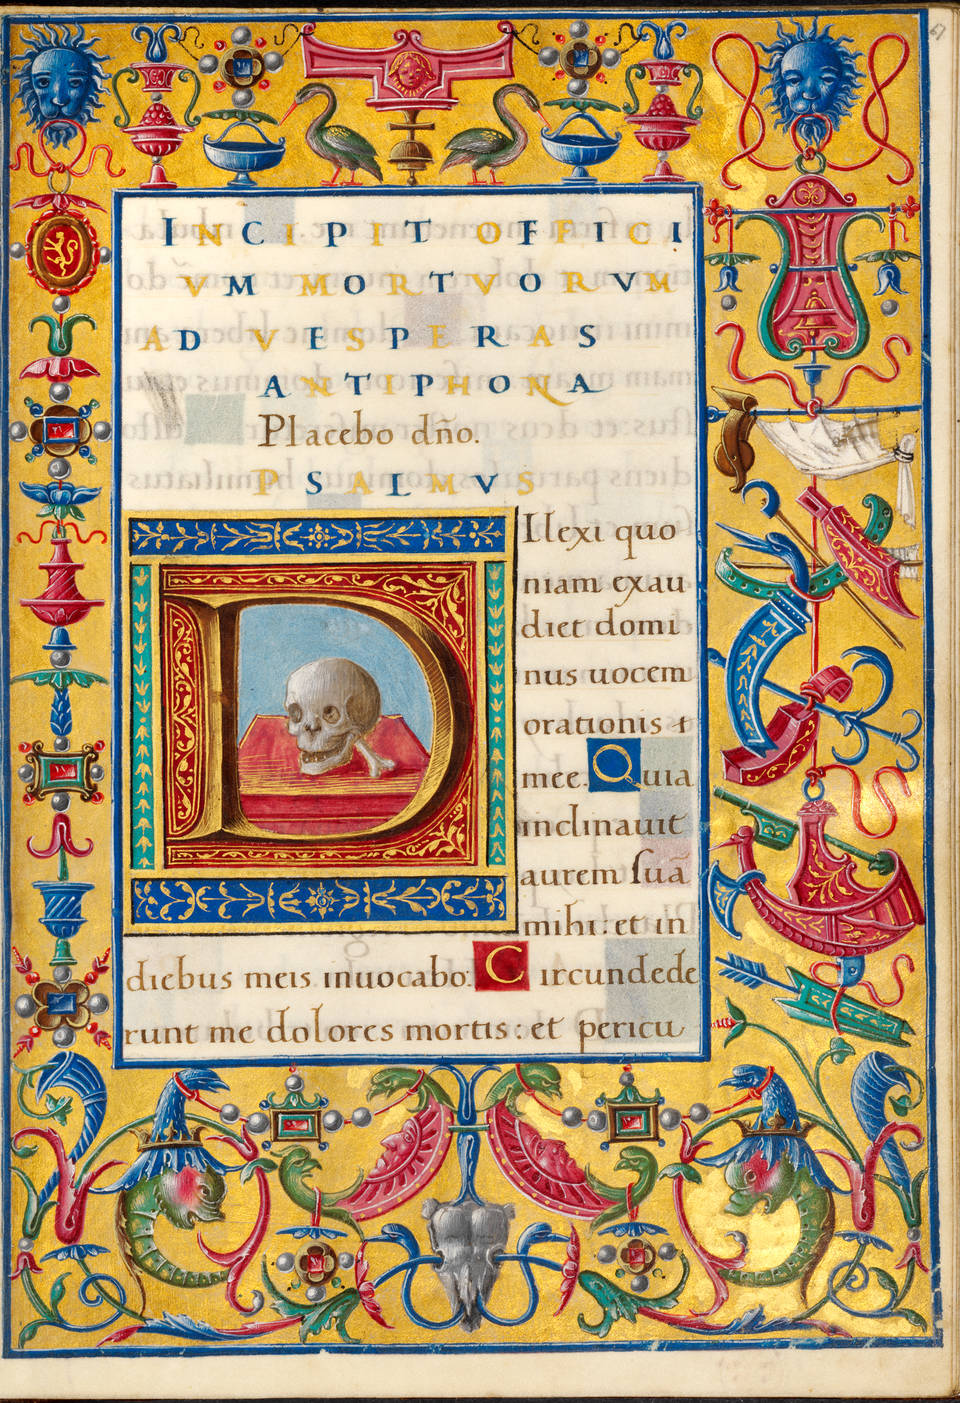 INCIPIT OFFICI
VM MORTVORVM
AD VESPERAS
ANTIPHONA
Placebo dño.
PSALMVS
DIlexi quo
niam exau
diet domi
nus uocem
orationis
mee. Quia
inclinauit
aurem suã
mihi: et in
diebus meis inuocabo: Circundede
runt me dolores mortis: et pericu